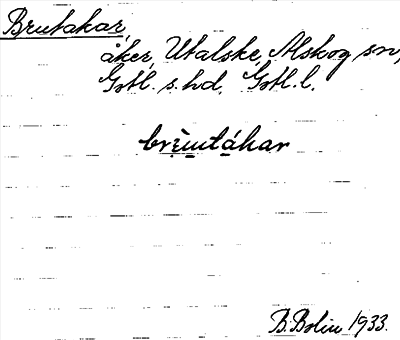 Brutakar,
åker, Utalske, Alskog sn,
Gotl. s. hd, Gotl. l.
brèutákar
B. Bolin 1933.